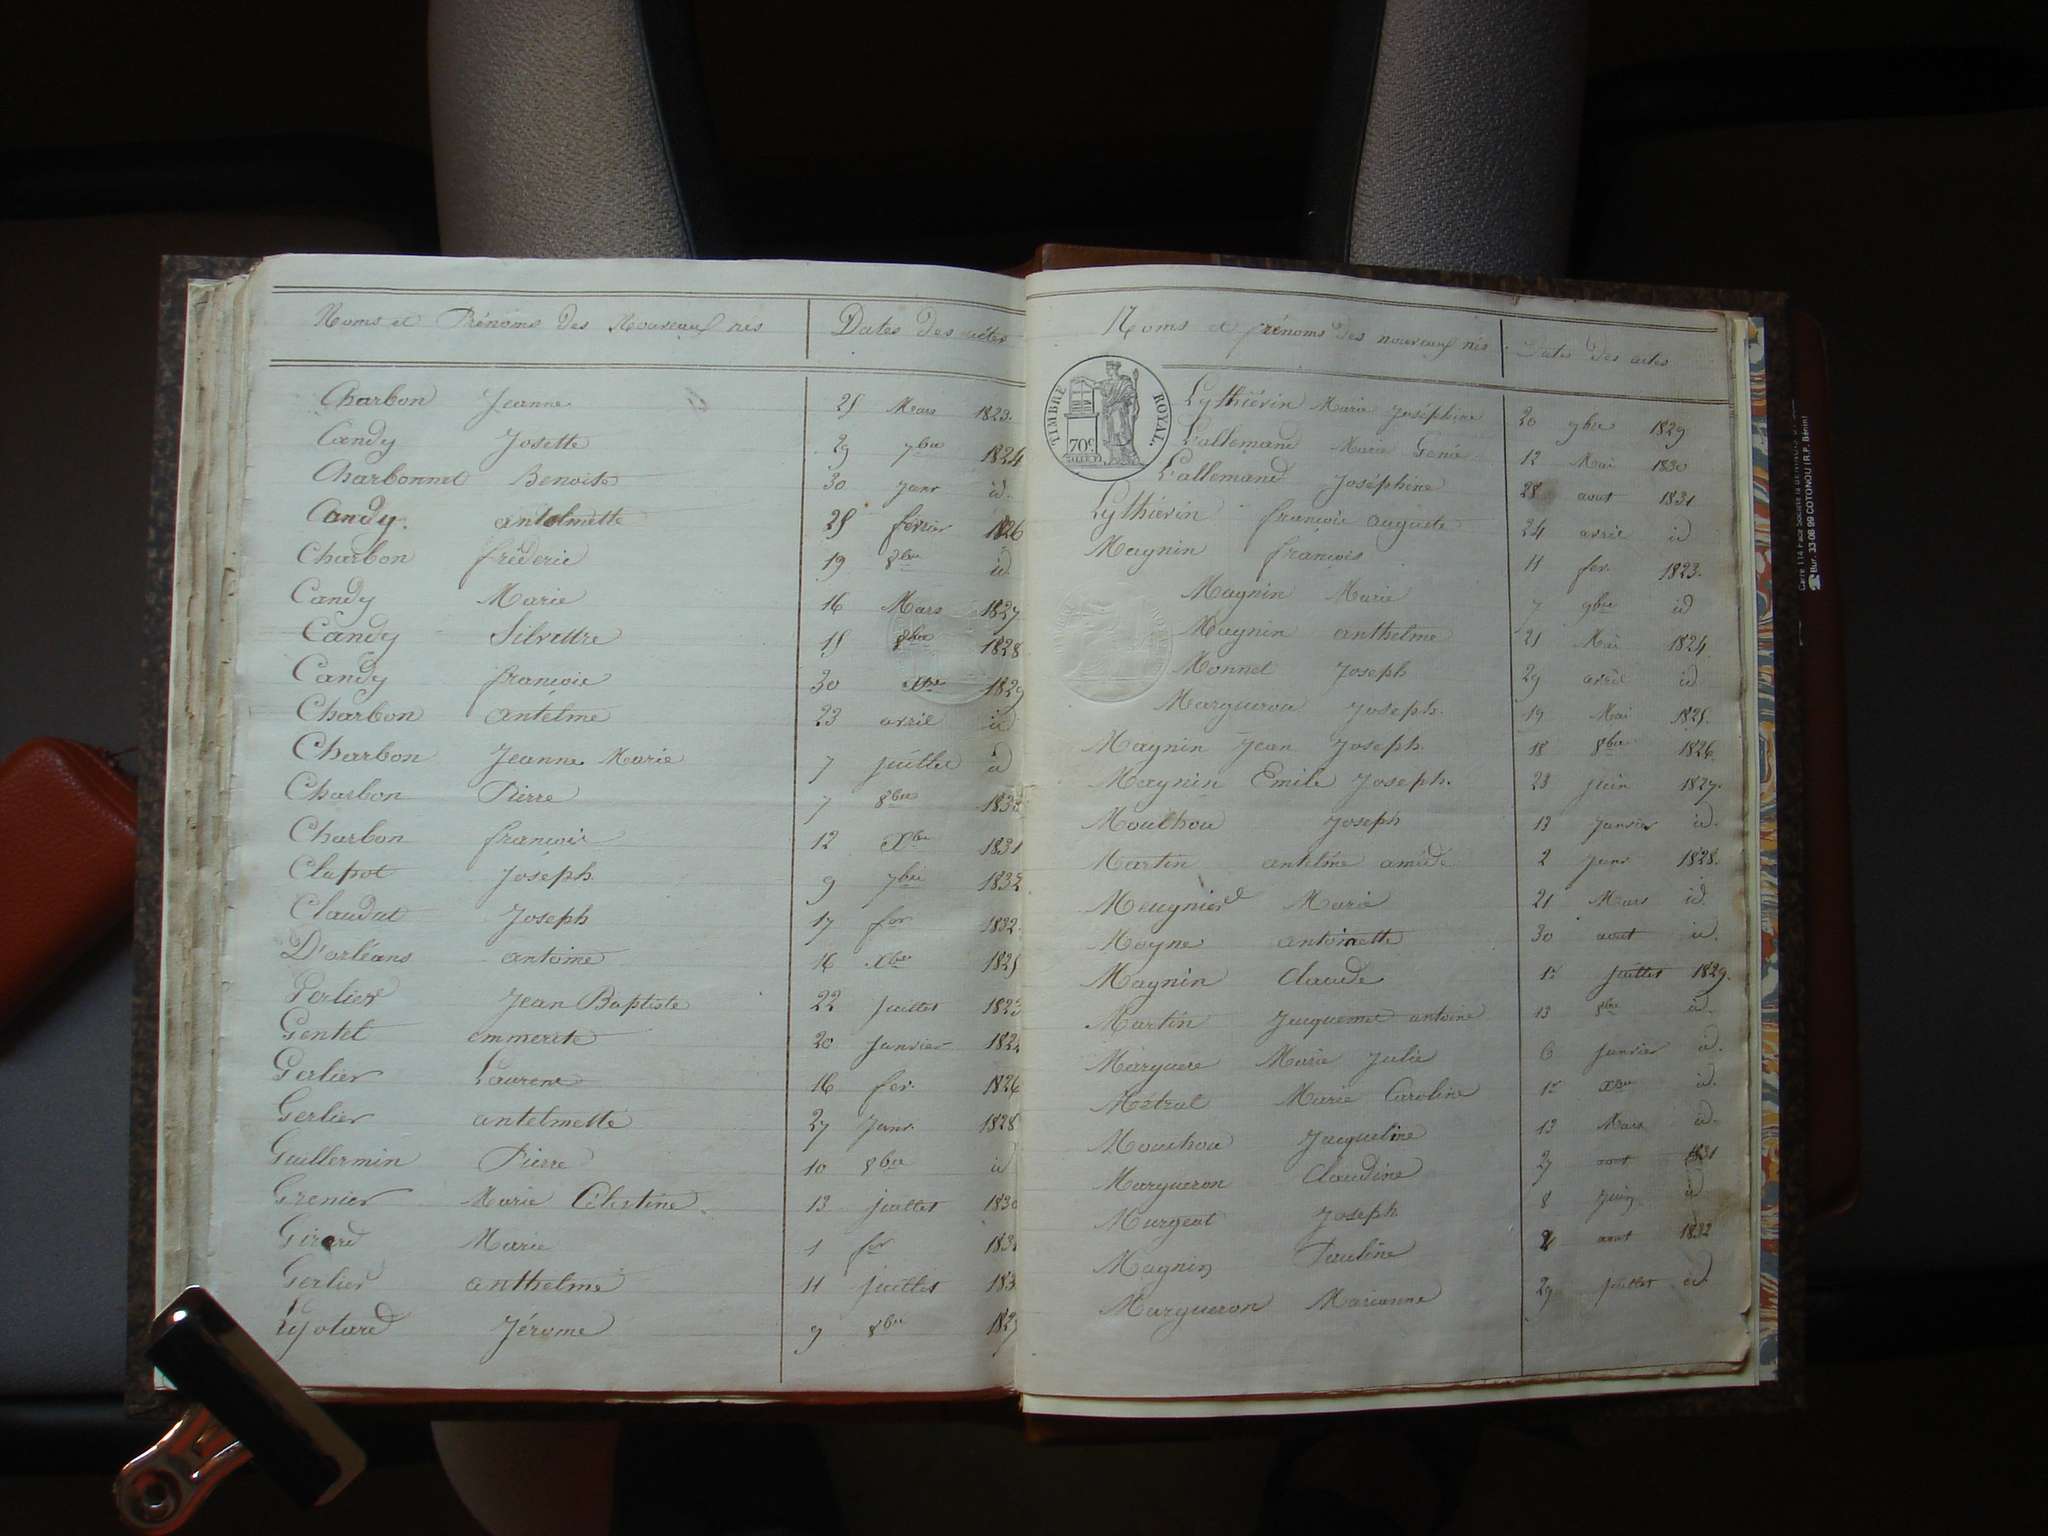 Noms et Prénoms des Nouveaux nés Dates des actes
Charbon Jeanne 25 Mars 1823.
Candy Josette 29 7bre 1824
Charbonnet Benoite 30 Janr id.
Candy. antelmette 25 fevrier 1826
Charbon fréderic 19 8bre id
Candy Marie 16 Mars 1827
Candy Silvestre 15 8bre 1828
Candy françois 30 Xbre 1829
Charbon antelme 23 avril id
Charbon Jeanne Marie 7 juillet id
Charbon Pierre 7 8bre
Charbon françois 12 Xbre 1831
Clapot Joseph 9 7bre 1832
Claudat Joseph 17 fer 1832.
D'orléans antoine 16 Xbre 1825
Gerlier Jean Baptiste 22 juillet 1823
Gentet emmerete 20 Janvier
Gerlier Laurent 16 fer. 1826
Gerlier antelmette 27 Janr. 1828
Guillermin Pierre 10 8bre id
Grenier Marie Célestine. 13 juillet 1830
Girard Marie 1 fer
Gerlier anthelme 11 juillet
Lyotard Jérome 9 8bre
Noms et prénoms des nouveaux nés Dates des actes
TIMBRE ROYAL.
70c
Lythiévin Marie Joséphine 20 9bre 1829
Lallemand Marie Génie 12 Mai 1830
Lallemand Joséphine 28 aout 1831
Lythiévin françois auguste 24 avril id
Magnin françois 11 fer. 1823.
Magnin Marie 7 9bre id
Magnin anthelme 21 Mai 1824
Monnet Joseph 29 avril id
Margueron Joseph. 19 Mai 1825.
Magnin Jean Joseph. 18 8bre 1826.
Magnin Emile Joseph. 23 juin 1827.
Mouthou Joseph 13 Janvier id.
Martin antelme amédé 2 janr 1828.
Meugnier Marie 21 Mars id.
Moyne antoinette 30 aout id.
Magnin Claude 1er juillet 1829.
Martin Jacquemet antoine 13 8bre id.
Marguere Marie Julie 6 Janvier id.
Métral Marie Caroline 1er Xbre id.
Mouthou Jacqueline 13 Mars id.
Margueron Claudine 27 aout 1831
Murgeat Joseph 8 Juin id
Magnin Pauline aout 1832
Margueron Marianne 29 juillet id.
Bur. 33 08 99 COTONOU (R.P. Bénin)